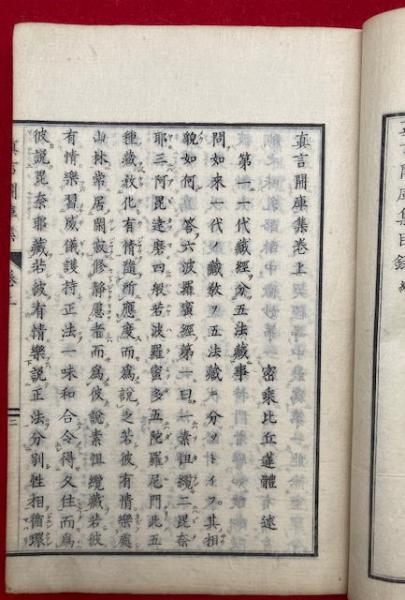 真言開庫集巻上
密乗比丘蓮體述
第一一代藏經分五法藏事
問如來一代ノ藏教ヲ五法藏ニ分ツトイフ其相
貌如何答六波羅蜜經第一曰一素怛纜二毘奈
耶三阿毘達磨四般若波羅蜜多五陀羅尼門此五
種藏教化有情隨所應度而爲説之若彼有情樂處
山林常居閑寂修靜慮者而爲彼説素怛纜藏若彼
有情樂習威儀護持正法一味和合令得久住而爲
彼説毘奈耶藏若彼有情樂説正法分別性相循環
真言開庫集 巻上
三
真言開庫集目錄